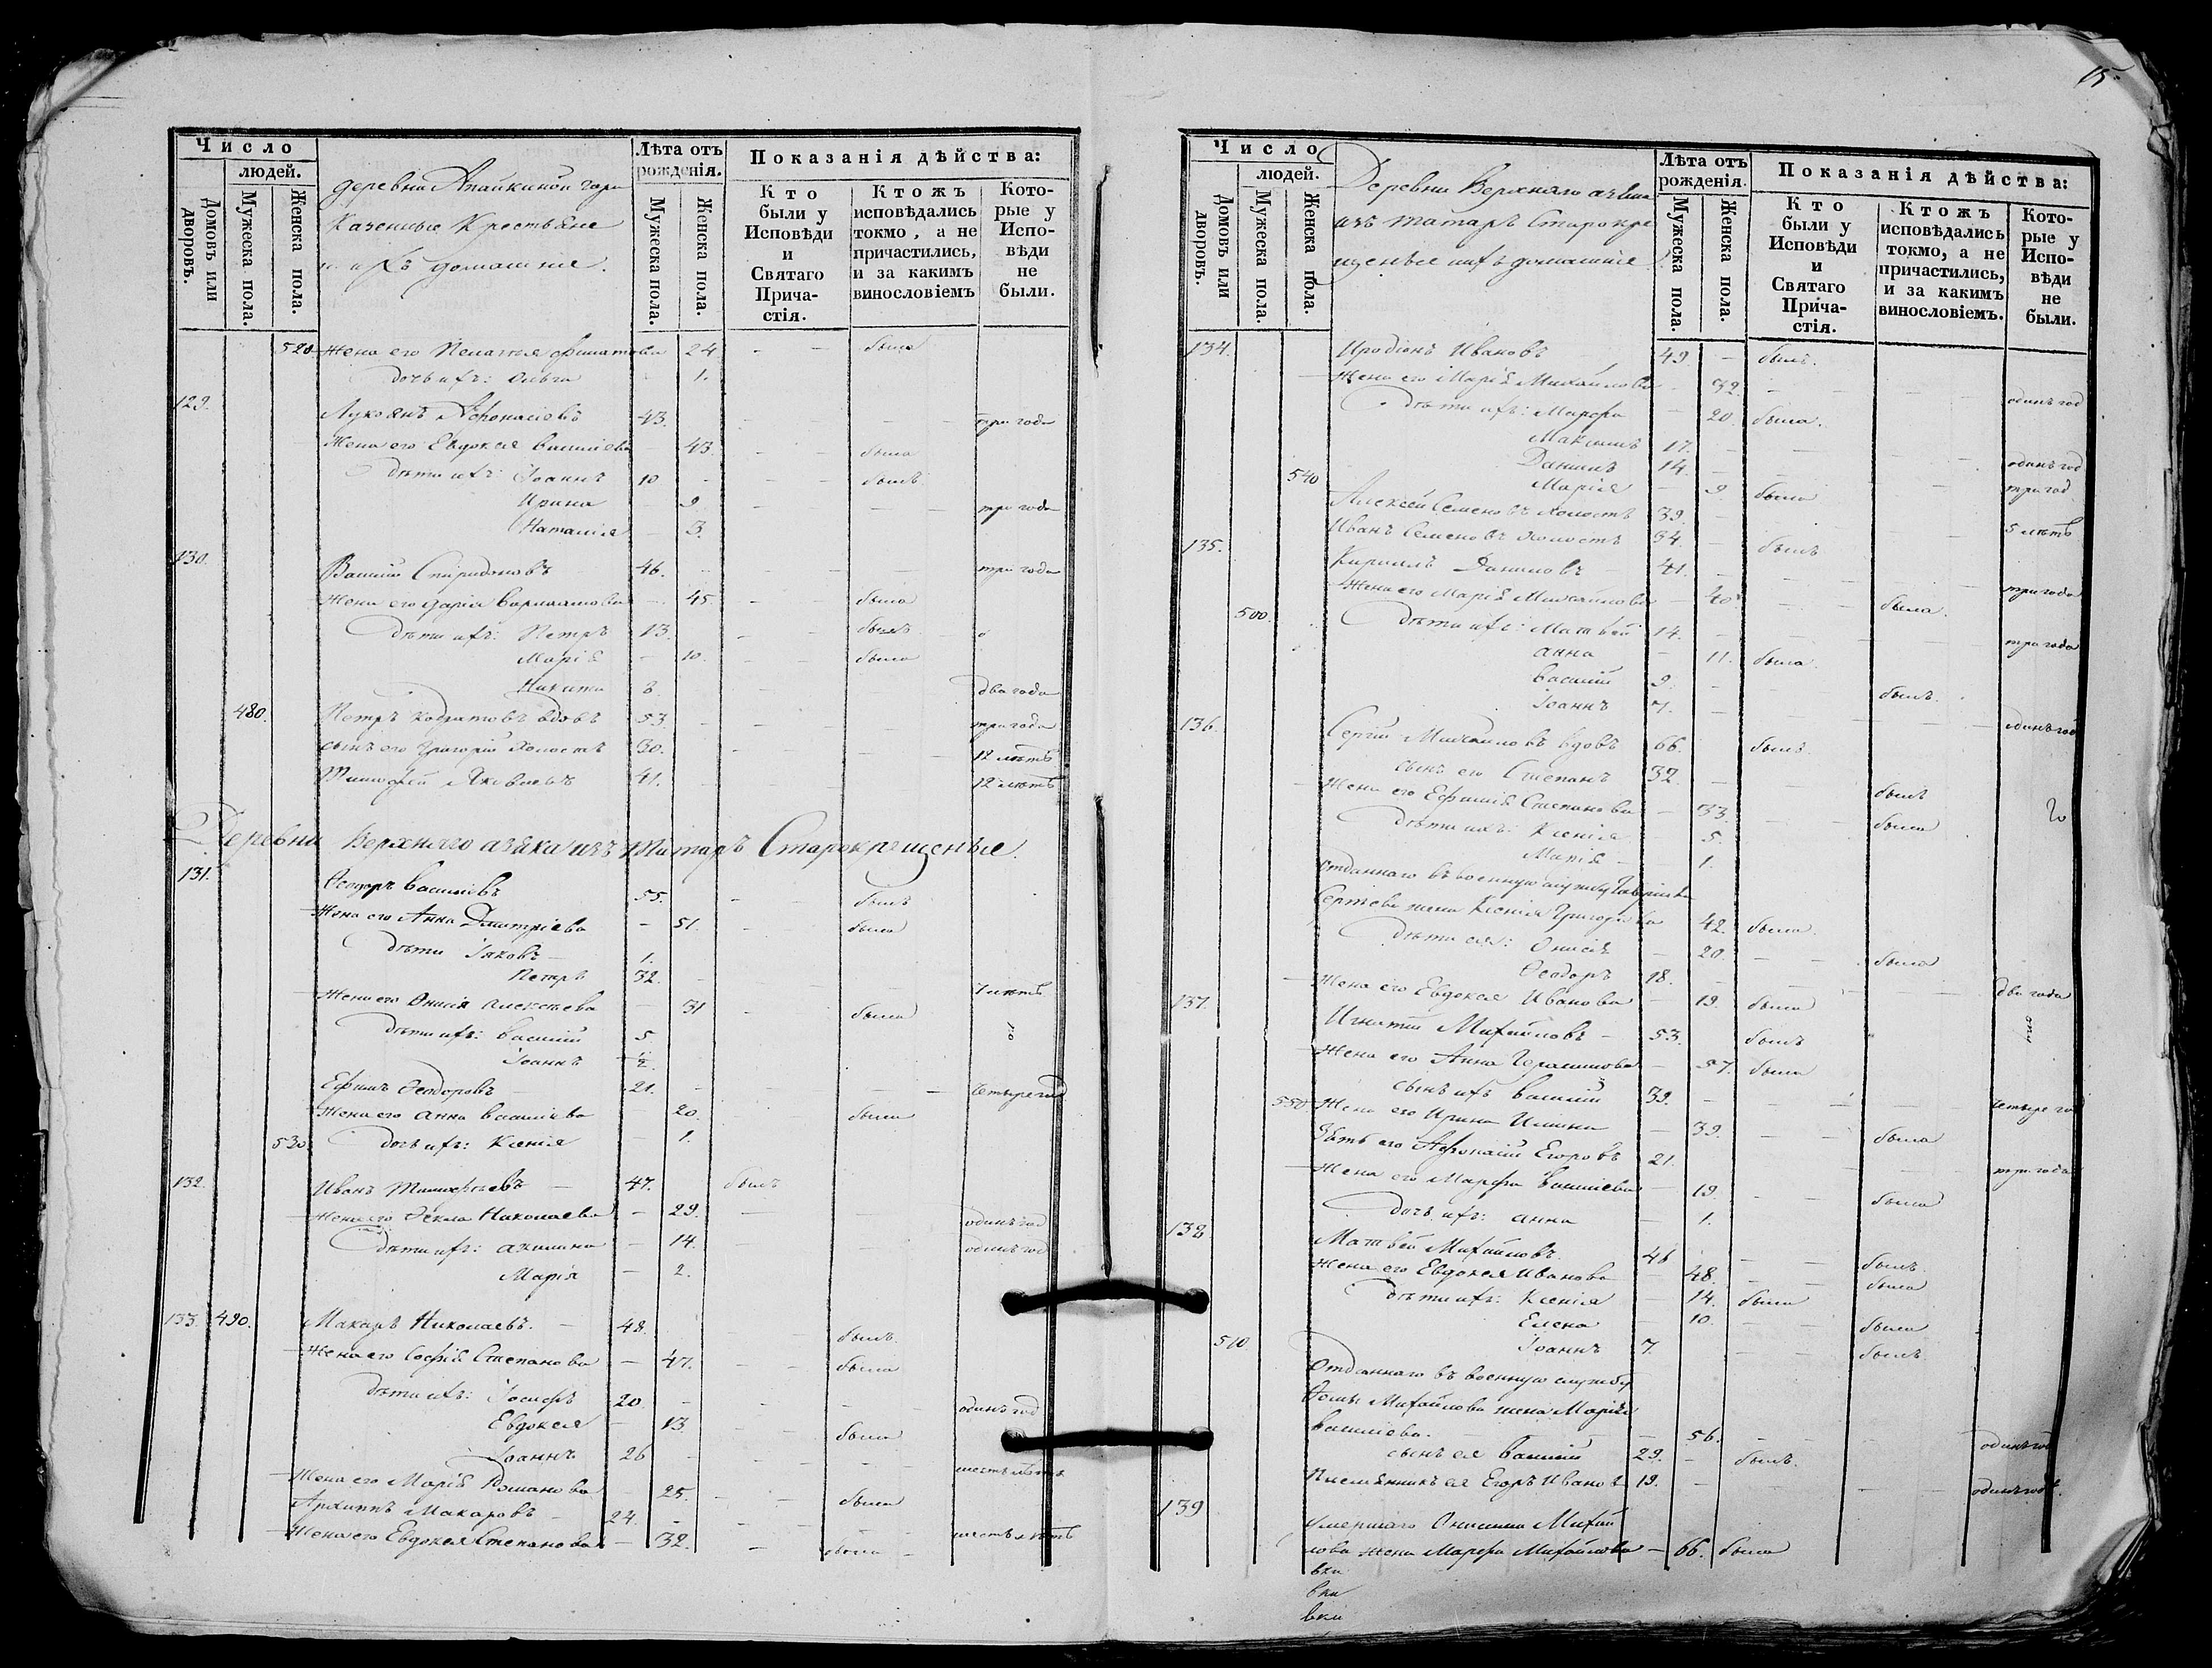 Число
людей.
Домовъ или дворовъ.
Мужеска пола.
Женска пола.
деревни Апайкиной гари
Казенные Крестьяне
и ихъ домашніе.
Лѣта отъ рожденія.
Мужеска пола.
Женска пола.
Показанія дѣйства:
Кто были у Исповѣди и Святаго Причастія.
Ктожъ исповѣдались токмо, а не причастились, и за какимъ винословіемъ
Которые у Исповѣди не были.
520 Жена его Пелагея 24 – – была
дочь ихъ: Ольга 1.
129. Лукоянъ Афонасіевъ 43. – – – три года
Жена его Евдокея Василіева 43. – – была
дѣти ихъ: Іоаннъ 10 – – былъ
Ирина – 9. – три года
Наталія – 3.
130. Василій Спиридоновъ 46. – три года
Жена его Дарія 45. – – была
дѣти ихъ: Петръ 13. – – былъ
Марія – 10. – – была
Никита 8. – два года
480. Петръ вдовъ 53. – три года
сынъ его Григорій холостъ 30. – 12 лѣтъ
Тимофей Яковлевъ 41. – 12 лѣтъ
Деревни Верхняго азяка изъ Татаръ Старокрещеные.
131. Ѳеодоръ Василіевъ 55. – былъ
Жена его Анна Дмитріева – 51. – была
дѣти Іаковъ – 1.
Петръ 32. – 7 лѣтъ
Жена его Онисія Алексѣева – 31 – была
дѣти ихъ: Василій 5
Іоаннъ ½
Ефимъ Ѳеодоровъ – 21. – четыре года
Жена его Анна Василіева 20. была
530. дочь ихъ: Ксенія – 1.
132. Иванъ Тимофѣевъ – 47. былъ
Жена его Ѳекла Николаева – 29. – одинъ год
дѣти ихъ: Акилина – 14. – одинъ год
Марія – 2.
133. 490. Макаръ Николаевъ. – 48. былъ
Жена его Софія Степанова – 47. – – была
дѣти ихъ: Іосифъ 20. – – – одинъ год
Евдокея – 13. – – была
Іоаннъ 26 – – – шесть лѣтъ
Жена его Марія Романова 25. – – была
Архиппъ Макаровъ – 24. – – шесть лѣтъ
Жена его Евдокея Степанова – 32. – – была –
15
Число
людей.
Домовъ или дворовъ.
Мужеска пола.
Женска пола.
Деревни Верхняго азяка
изъ татаръ Старокре
щеные и ихъ домашніе
Лѣта отъ рожденія.
Мужеска пола.
Женска пола.
Показанія дѣйства:
Кто были у Исповѣди и Святаго Причастія.
Ктожъ исповѣдались токмо, а не причастились, и за какимъ винословіемъ.
Которые у Исповѣди не были.
134. Иродіонъ Ивановъ 49. – былъ.
Жена его Марія Михайлова – – – одинъ год
дѣти ихъ: Марфа – 20. была.
Максимъ 17. – одинъ год
Даніилъ 14. – три год
540 Марія – 9. была
Алексей Семеновъ холостъ 39. – 5 лѣтъ
Иванъ Семеновъ холостъ 34. – былъ
135. Кириллъ Даниловъ 41. – три года
Жена его Марія Михайлова – 40. – была.
500. дѣти ихъ: Матвей 14. – три года
анна – 11. была.
Василій 9. – былъ.
Іоаннъ 7. – одинъ год
136. Сергій Михаиловъ вдовъ 66. былъ
сынъ его Степанъ 32. – былъ
Жена его Ефимія Степанова – 33. – была
дѣти ихъ: Ксенія 5.
Марія – 1.
Отданнаго въ военную службу
Сергѣева жена Ксенія Григорьева 42. была.
дѣти ея: Онисія – 20. – – была
Ѳеодоръ 18. – – – два года
Жена его Евдокея Иванова – 19. была
137. Игнатій Михайловъ – 53. былъ
Жена его Анна Герасимова – 57. была
сынъ ихъ Василій 39. – – – четыре го
550 Жена его Ирина Ильина – 39. – – была
Зять его Афонасій Егоровъ 21. – – три года
Жена его Марфа Василіева – 19. – – была
дочь ихъ: анна – 1.
138 Матвей Михайловъ. 46 – – былъ
Жена его Евдокея Иванова – 48. – – была
дѣти ихъ: Ксенія – 14. была
Елена – 10. – – была
510. Іоаннъ 7. – – былъ
Отданнаго въ военную службу
Ѳомы Михайлова жена Марія
Василіева. – 56. – – – одинъ год
сынъ ея Василій 29. – былъ.
Племянникъ ея Егоръ Ивановъ 19. – – – одинъ годъ.
139 Умершаго Онисима Михай
лова жена Марфа Михайлова – 66. была
вки
вки
вки